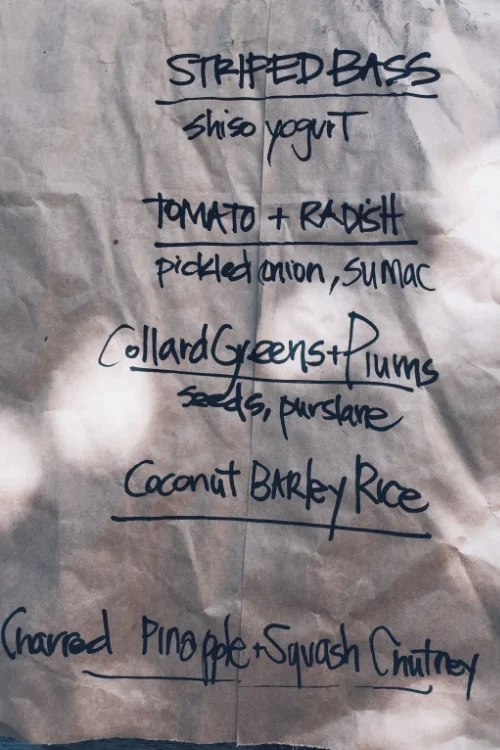 STRIPED BASS
shiso yogurt
TOMATO + RADISH
pickled onion, sumac
Collard Greens + Plums
seeds, purslane
Coconut Barley Rice
Charred Pinapple + Squash Chutney